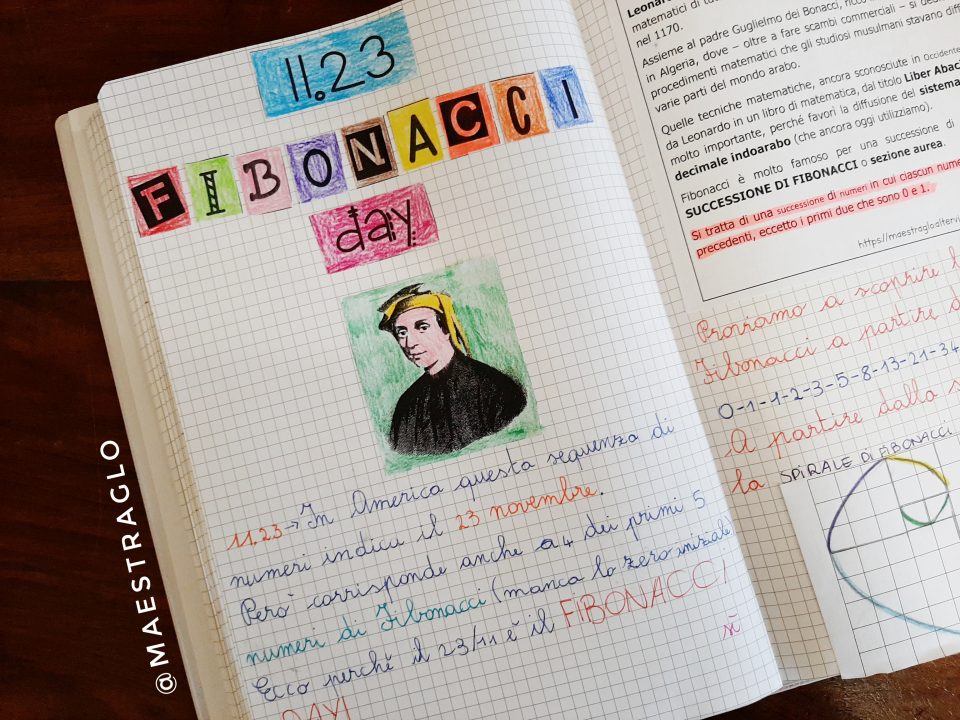 11.23
FIBONACCI
day
11.23→In America questa sequenza di
numeri indica il 23 novembre.
Però corrisponde anche a 4 dei primi 5
numeri di Fibonacci (manca lo zero iniziale
Ecco perché il 23/11 è il FIBONACCI
DAY!
Leonardo
matematici di
nel 1170.
Assieme al padre Guglielmo dei Bonacci, ricco
in Algeria, dove – oltre a fare scambi commerciali – si
procedimenti matematici che gli studiosi musulmani stavano
varie parti del mondo arabo.
Quelle tecniche matematiche, ancora sconosciute in Occidente
da Leonardo in un libro di matematica, dal titolo Liber Abaci
molto importante, perché favorì la diffusione del sistema
decimale indoarabo (che ancora oggi utilizziamo).
Fibonacci è molto famoso per una successione di
SUCCESSIONE DI FIBONACCI o sezione aurea.
Si tratta di una successione di numeri in cui ciascun
precedenti, eccetto i primi due che sono 0 e 1.
https://maestragloaltervi
Proviamo a scoprire
Fibonacci a partire
0-1-1-2-3-5-8-13-21-34
A partire dalla
la SPIRALE DI FIBONACCI
@MAESTRAGLO